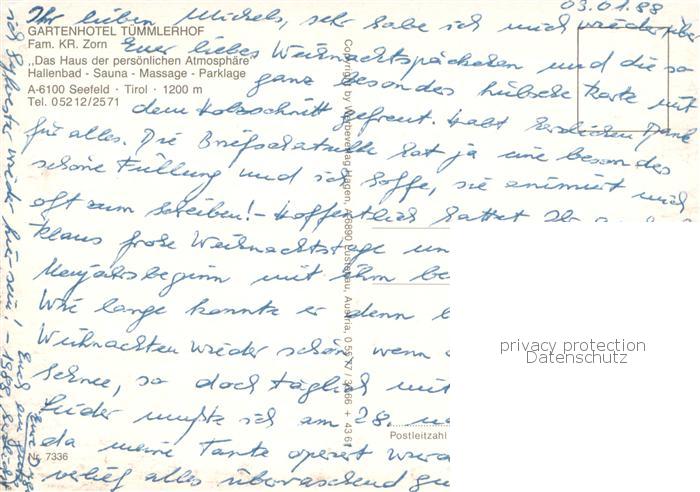 03.01.88
Ihr lieben Michels, sehr habe ich mich wieder über
GARTENHOTEL TÜMMLERHOF
Fam. KR. Zorn
Euer liebes Weihnachtspäckchen und die so
„Das Haus der persönlichen Atmosphäre"
Hallenbad - Sauna - Massage - Parklage
ganz besonders hübsche Karte mit
A-6100 Seefeld · Tirol · 1200 m
Tel. 05212/2571
dem Holzschnitt gefreut. Habt herzlichen Dank
für alles. Die Briefschatulle hat ja eine besonders
schöne Füllung und ich hoffe, sie animiert mich
oft zum schreiben! - Hoffentlich hattet Ihr
Klaus frohe Weihnachtstage un
Neujahrsbeginn mit ihm be
Wie lange konnte er denn b
Weihnachten wieder schön, wenn
Schnee, so doch täglich mit
Leider mußte ich am 28.
da meine Tante operiert wurd
verlief alles überraschend gu
Nr. 7336
Postleitzahl
Copyright by Werbeverlag Hagen, A-6890 Lustenau, Austria, 0 55 77 / 3666 + 43 61
ich Sylvester wieder hier sein! - 1988
privacy protection
Datenschutz